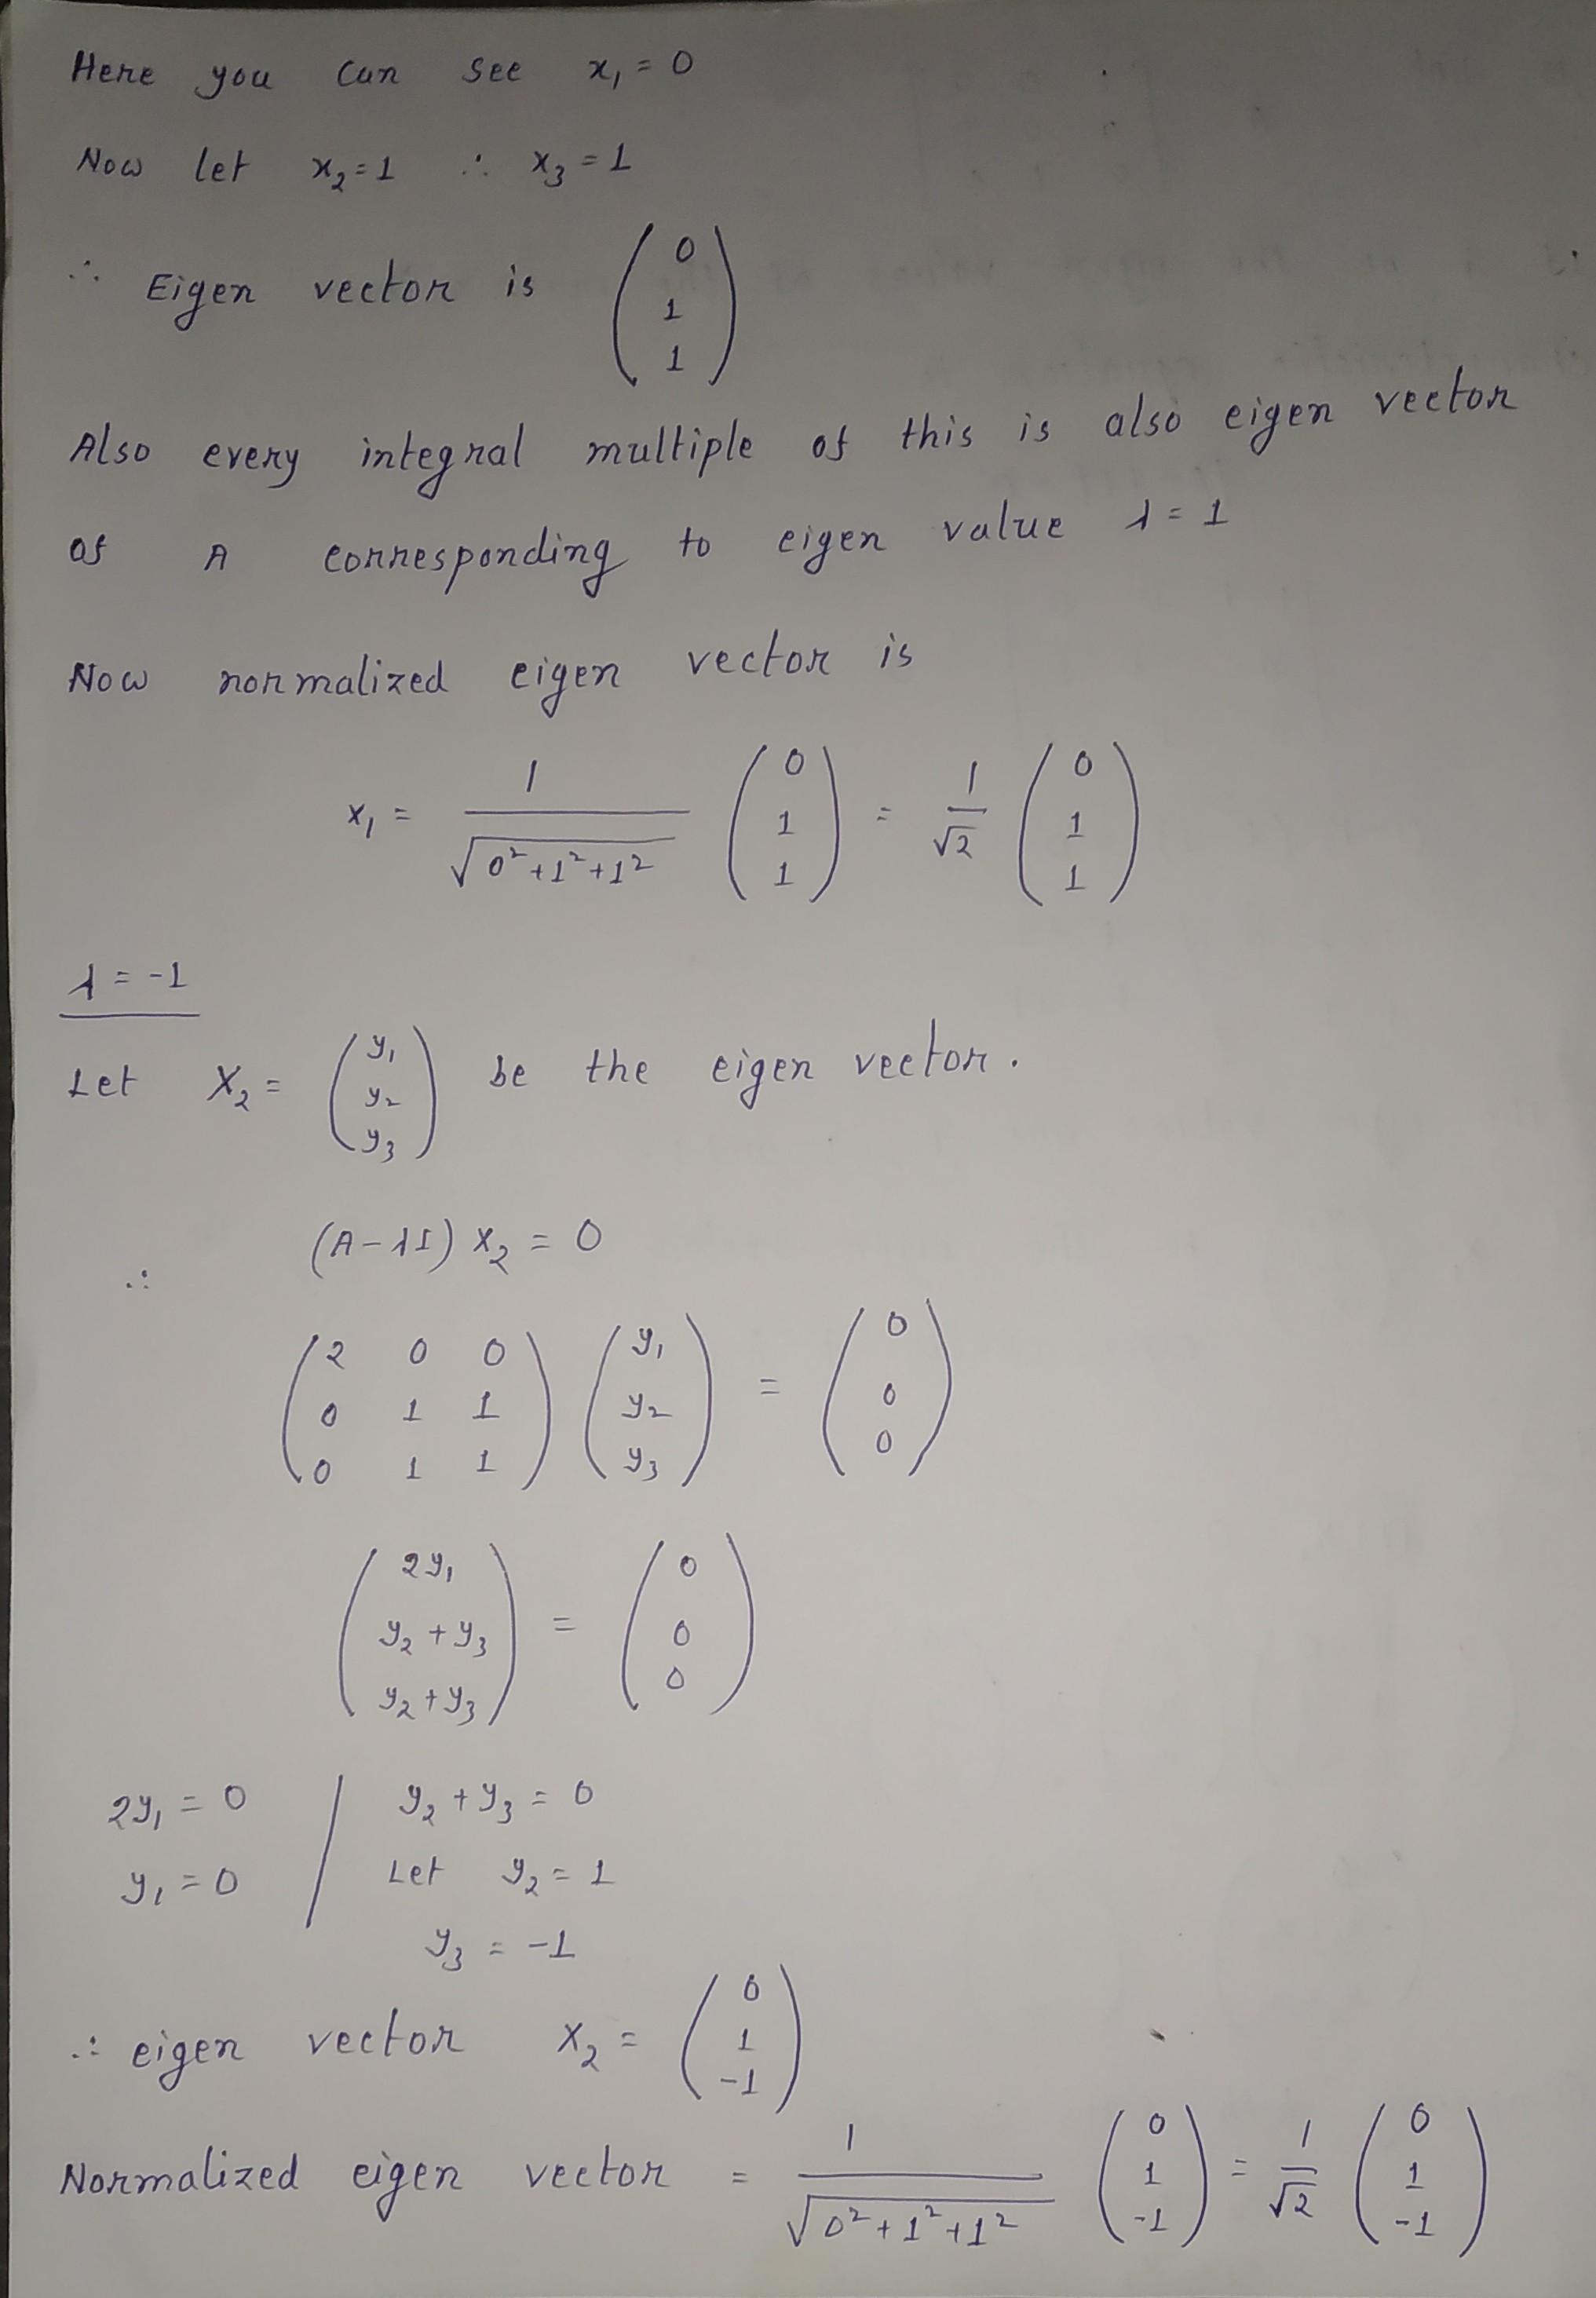 Here you can see x₁ = 0
Now let x₂ = 1 ∴ x₃ = 1
∴ Eigen vector is (0 1 1)
Also every integral multiple of this is also eigen vector
of A corresponding to eigen value λ = 1
Now normalized eigen vector is
x₁ = 1/√(0²+1²+1²) (0 1 1) = 1/√2 (0 1 1)
λ = -1
Let X₂ = (y₁ y₂ y₃) be the eigen vector.
∴ (A - λI) X₂ = 0
(2 0 0
0 1 1
0 1 1) (y₁ y₂ y₃) = (0 0 0)
(2y₁
y₂ + y₃
y₂ + y₃) = (0 0 0)
2y₁ = 0 / y₂ + y₃ = 0
y₁ = 0 / Let y₂ = 1
y₃ = -1
∴ eigen vector X₂ = (0 1 -1)
Normalized eigen vector = 1/√(0²+1²+1²) (0 1 -1) = 1/√2 (0 1 -1)